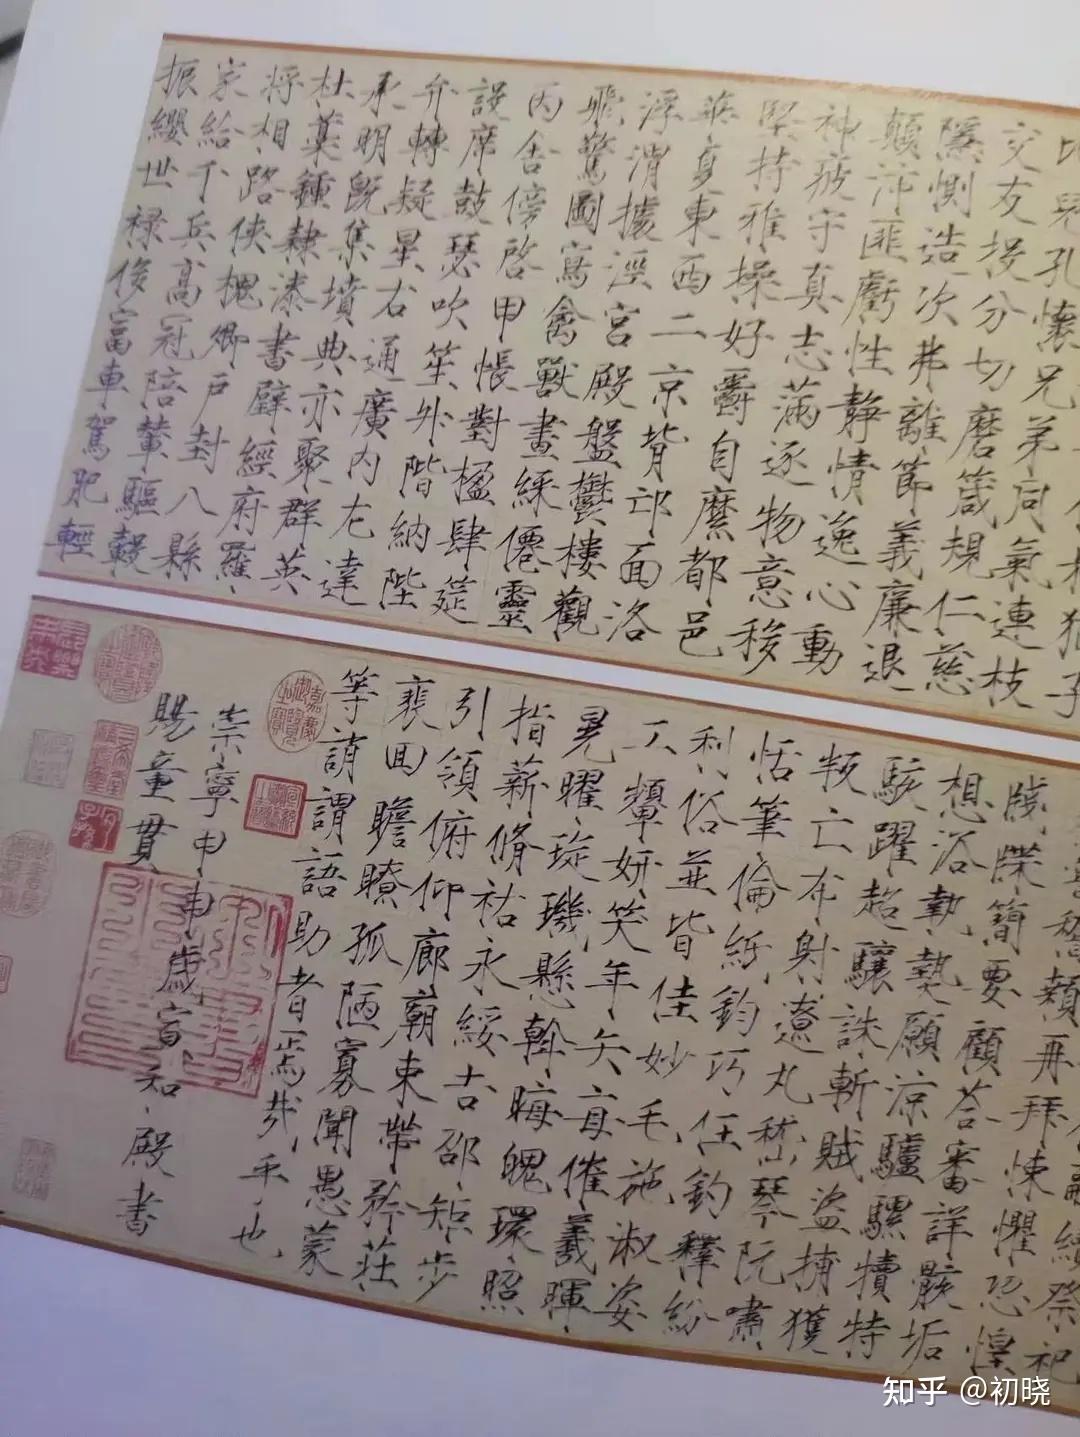 猶子
比兒孔懷兄弟同氣連枝
交友投分切磨箴規仁慈
隱惻造次弗離節義廉退
顛沛匪虧性靜情逸心動
神疲守真志滿逐物意移
堅持雅操好爵自縻都邑
華夏東西二京背邙面洛
浮渭據涇宮殿盤鬱樓觀
飛驚圖寫禽獸畫綵僊靈
丙舍傍啓甲帳對楹肆筵
設席鼓瑟吹笙升階納陛
弁轉疑星右通廣內左達
承明既集墳典亦聚群英
杜藁鍾隸漆書壁經府羅
將相路俠槐卿戶封八縣
家給千兵高冠陪輦驅轂
振纓世祿侈富車駕肥輕
嗣續祭祀
嘗稽顙再拜悚懼恐惶
牋牒簡要顧荅審詳骸垢
想浴執熱願涼驢騾犢特
駭躍超驤誅斬賊盜捕獲
叛亡布射遼丸嵇琴阮嘯
恬筆倫紙鈞巧任釣釋紛
利俗並皆佳妙毛施淑姿
工顰妍笑年矢每催羲暉
晃曜旋璣懸斡晦魄環照
指薪脩祜永綏吉邵矩步
引領俯仰廊廟束帶矜莊
裴回瞻眺孤陋寡聞愚蒙
等誚謂語助者焉哉乎也
崇寧甲申歲宣和殿書
賜童貫
知乎 @初晓